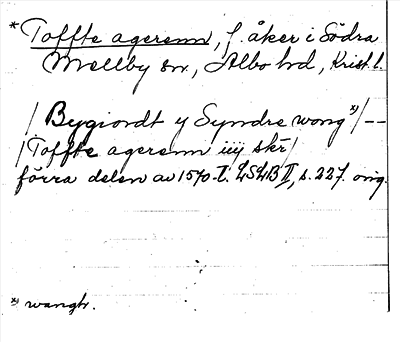 * Toffte agerenn, f. åker i Södra
Mellby sn, Albo hd, Krist. l.
/ Bygiordt y Syndre wong *)/--
/Toffte agerenn iiij skr/
förra delen av 1570-t. LSLB II, s. 227. orig.
*) wangh.